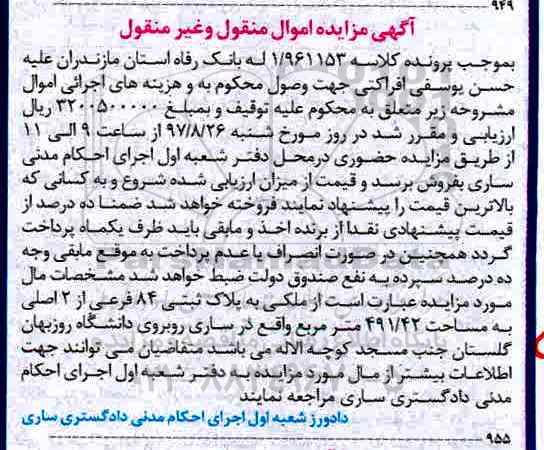 ۹۴۹
آگهی مزایده اموال منقول وغیر منقول
بموجب پرونده کلاسه ۱/۹۶۱۱۵۳ لـه بانک رفاه استان مازندران علیه
حسن یوسفی افراکتی جهت وصول محکوم به و هزینه های اجرائی اموال
مشروحه زیر متعلق به محکوم علیه توقیف و بمبلغ ۳۲۰۰۵۰۰۰۰۰ ریال
ارزیابی و مقرر شد در روز مورخ شنبه ۹۷/۸/۲۶ از ساعت ۹ الی ۱۱
از طریق مزایده حضوری درمحل دفتر شعبه اول اجرای احکام مدنی
ساری بفروش برسد و قیمت از میزان ارزیابی شده شروع و به کسانی که
بالاترین قیمت را پیشنهاد نمایند فروخته خواهد شد ضمنا ده درصد از
قیمت پیشنهادی نقدا از برنده اخذ و مابقی باید ظرف یکماه پرداخت
گردد همچنین در صورت انصراف یا عدم پرداخت به موقع مابقی وجه
ده درصد سپرده به نفع صندوق دولت ضبط خواهد شد مشخصات مال
مورد مزایده عبارت است از ملکی به پلاک ثبتی ۸۴ فرعی از ۲ اصلی
به مساحت ۴۹۱/۴۲ متر مربع واقع در ساری روبروی دانشگاه روزبهان
گلستان جنب مسجد کوچه لاله می باشد متقاضیان می توانند جهت
اطلاعات بیشتر از مال مورد مزایده به دفتر شعبه اول اجرای احکام
مدنی دادگستری ساری مراجعه نمایند
دادورز شعبه اول اجرای احکام مدنی دادگستری ساری
۹۵۵